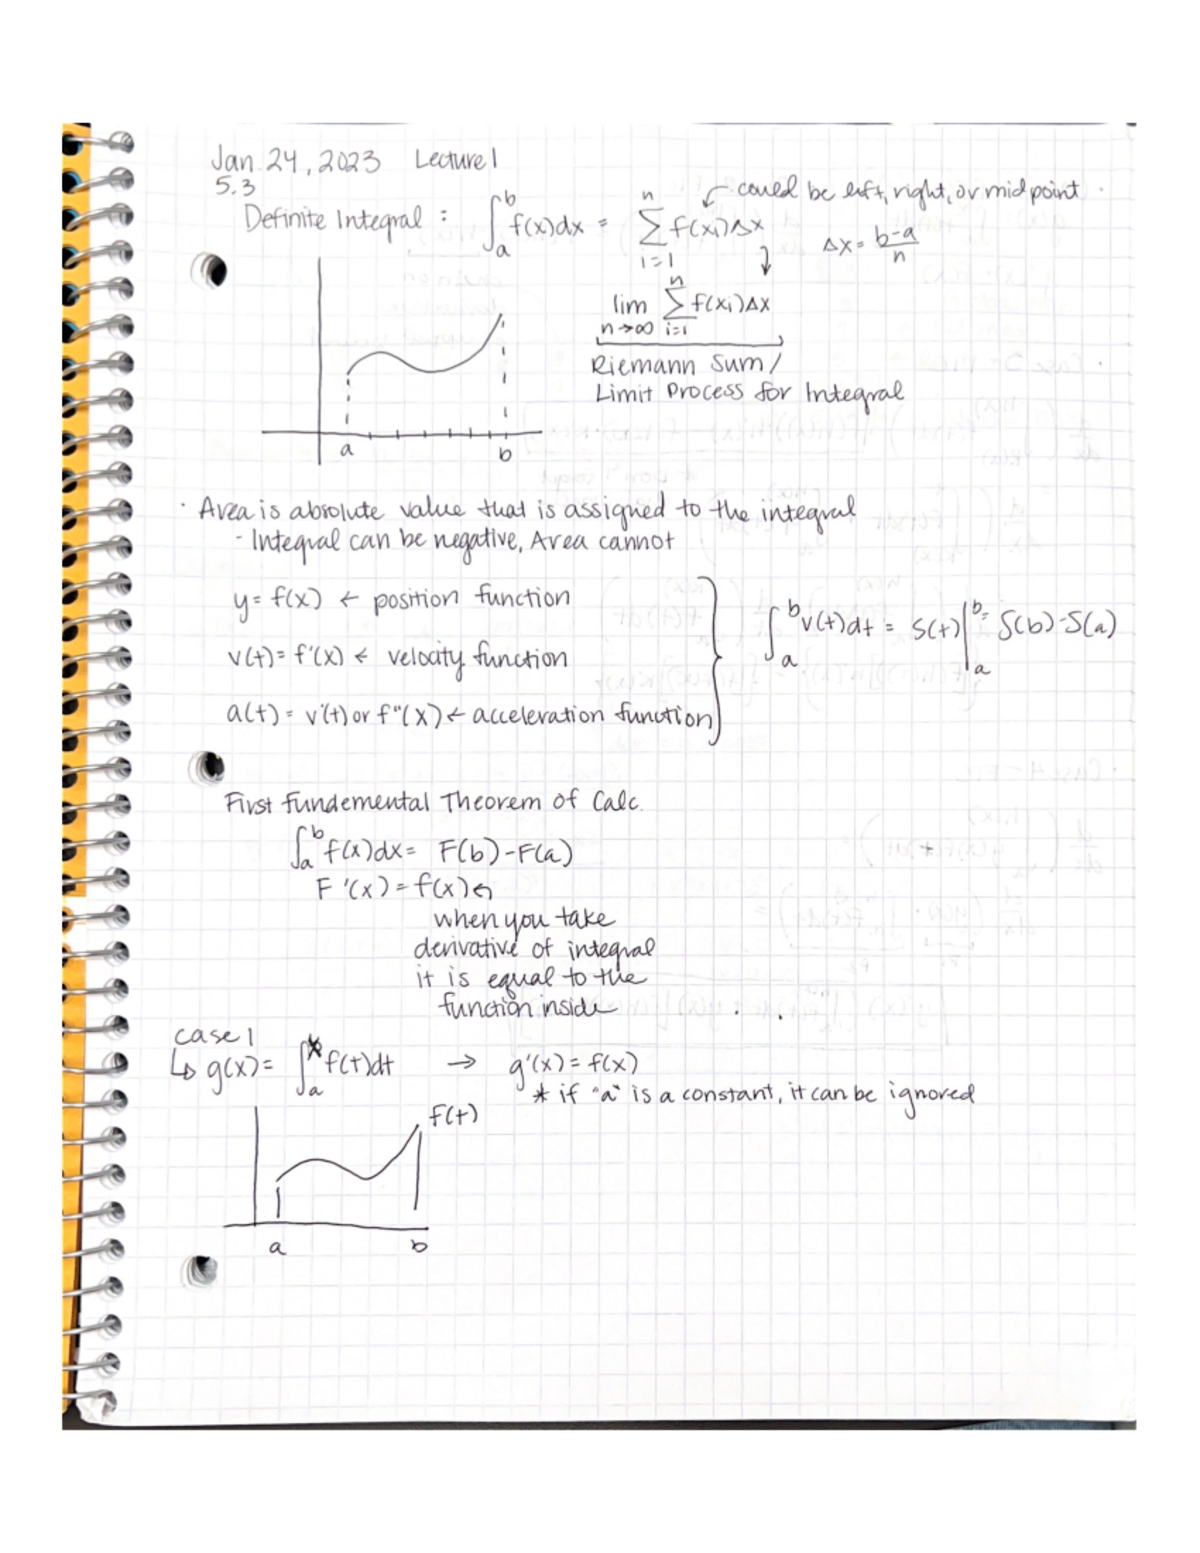 Jan 24, 2023 Lecture 1
5.3
Definite Integral : ∫_a^b f(x)dx = Σ_{i=1}^n f(xᵢ)Δx
could be left, right, or midpoint
Δx = (b-a)/n
lim_{n→∞} Σ_{i=1}^n f(xᵢ)Δx
Riemann Sum /
Limit Process for Integral
a b
· Area is absolute value that is assigned to the integral
- Integral can be negative, Area cannot
y = f(x) ← position function
v(t) = f'(x) ← velocity function
a(t) = v'(t) or f"(x) ← acceleration function
∫_a^b v(t)dt = S(t)|_a^b = S(b)-S(a)
First Fundemental Theorem of Calc.
∫_a^b f(x)dx = F(b)-F(a)
F'(x) = f(x) ↰
when you take
derivative of integral
it is equal to the
function inside
case 1
↳ g(x) = ∫_a^x f(t)dt → g'(x) = f(x)
* if "a" is a constant, it can be ignored
f(t)
a b